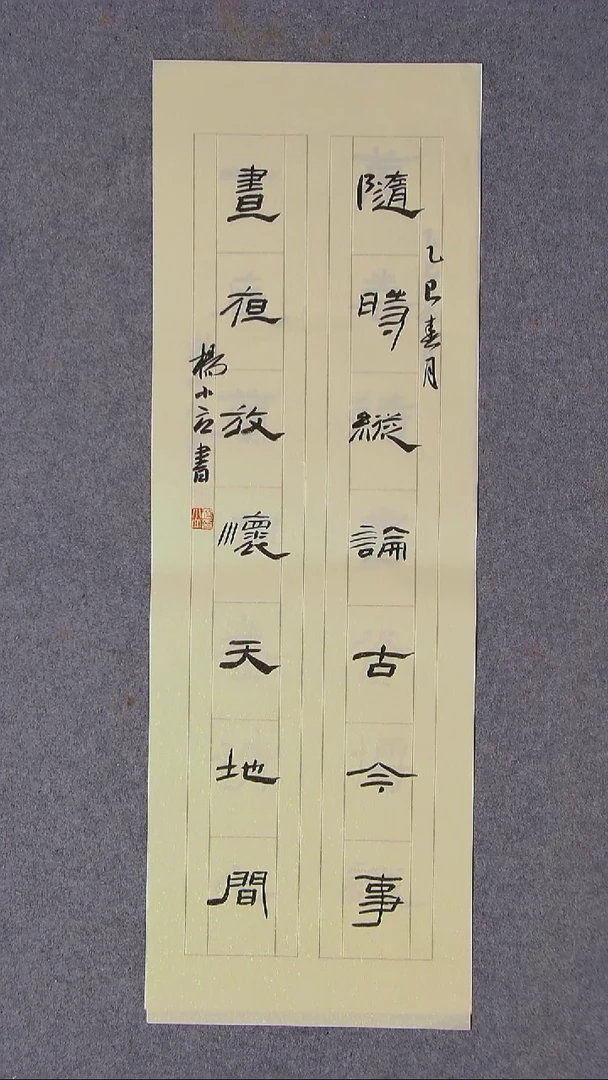 隨時縱論古今事
乙巳春月
晝夜放懷天地間
楊小立書